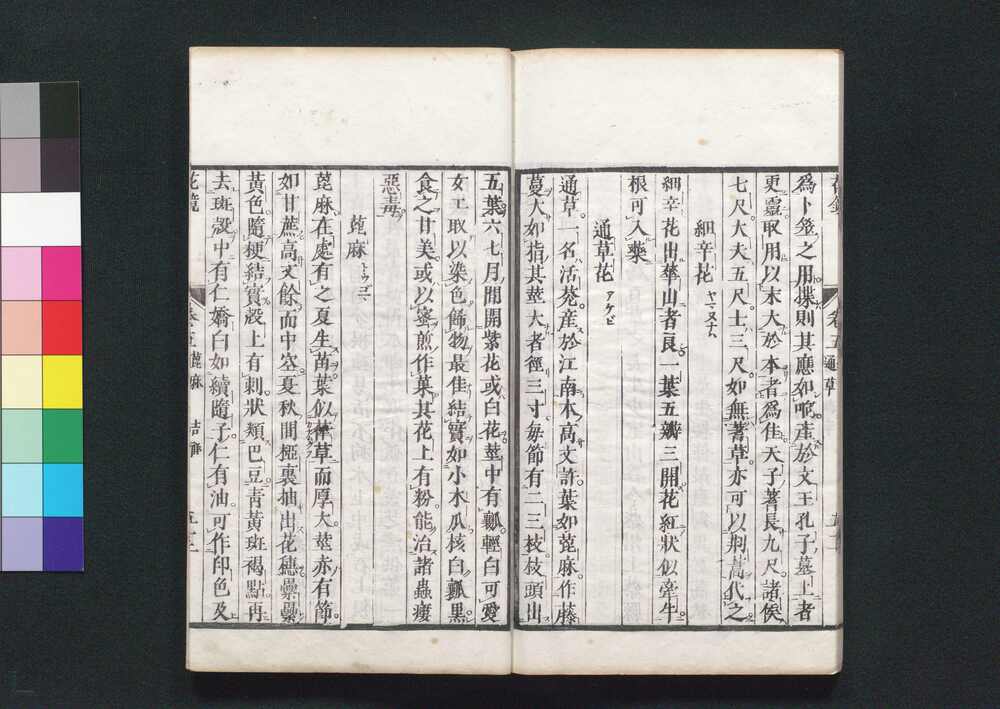 爲卜筮之用揲則其應如响產於文王孔子墓上者
更靈取用以末大於本者爲佳天子蓍長九尺諸侯
七尺大夫五尺士三尺如無蓍草亦可以荆蒿代之
細辛花 ヤマヌナハ
細辛花出華山者良一葉五瓣三開花紅狀似牽牛
根可入藥
通草花 アケビ
通草一名活莌產於江南本高丈許葉如蓖麻作藤
蔓大如指其莖大者徑三寸每節有二三枝枝頭出
五葉六七月間開紫花或白花莖中有瓤輕白可愛
女工取以染色飾物最佳結實如小木瓜核白瓤黑
食之甘美或以蜜煎作菓其花上有粉能治諸蟲瘻
惡毒
蓖麻 トウゴマ
蓖麻在處有之夏生苗葉似葎草而厚大莖赤有節
如甘蔗高丈餘而中空夏秋間椏裏抽出花穗纍纍
黃色隨梗結實殼上有刺狀類巴豆靑黃斑褐點再
去斑殼中有仁嬌白如續隨子仁有油可作印色及
花鏡
卷五 通草
蓖麻